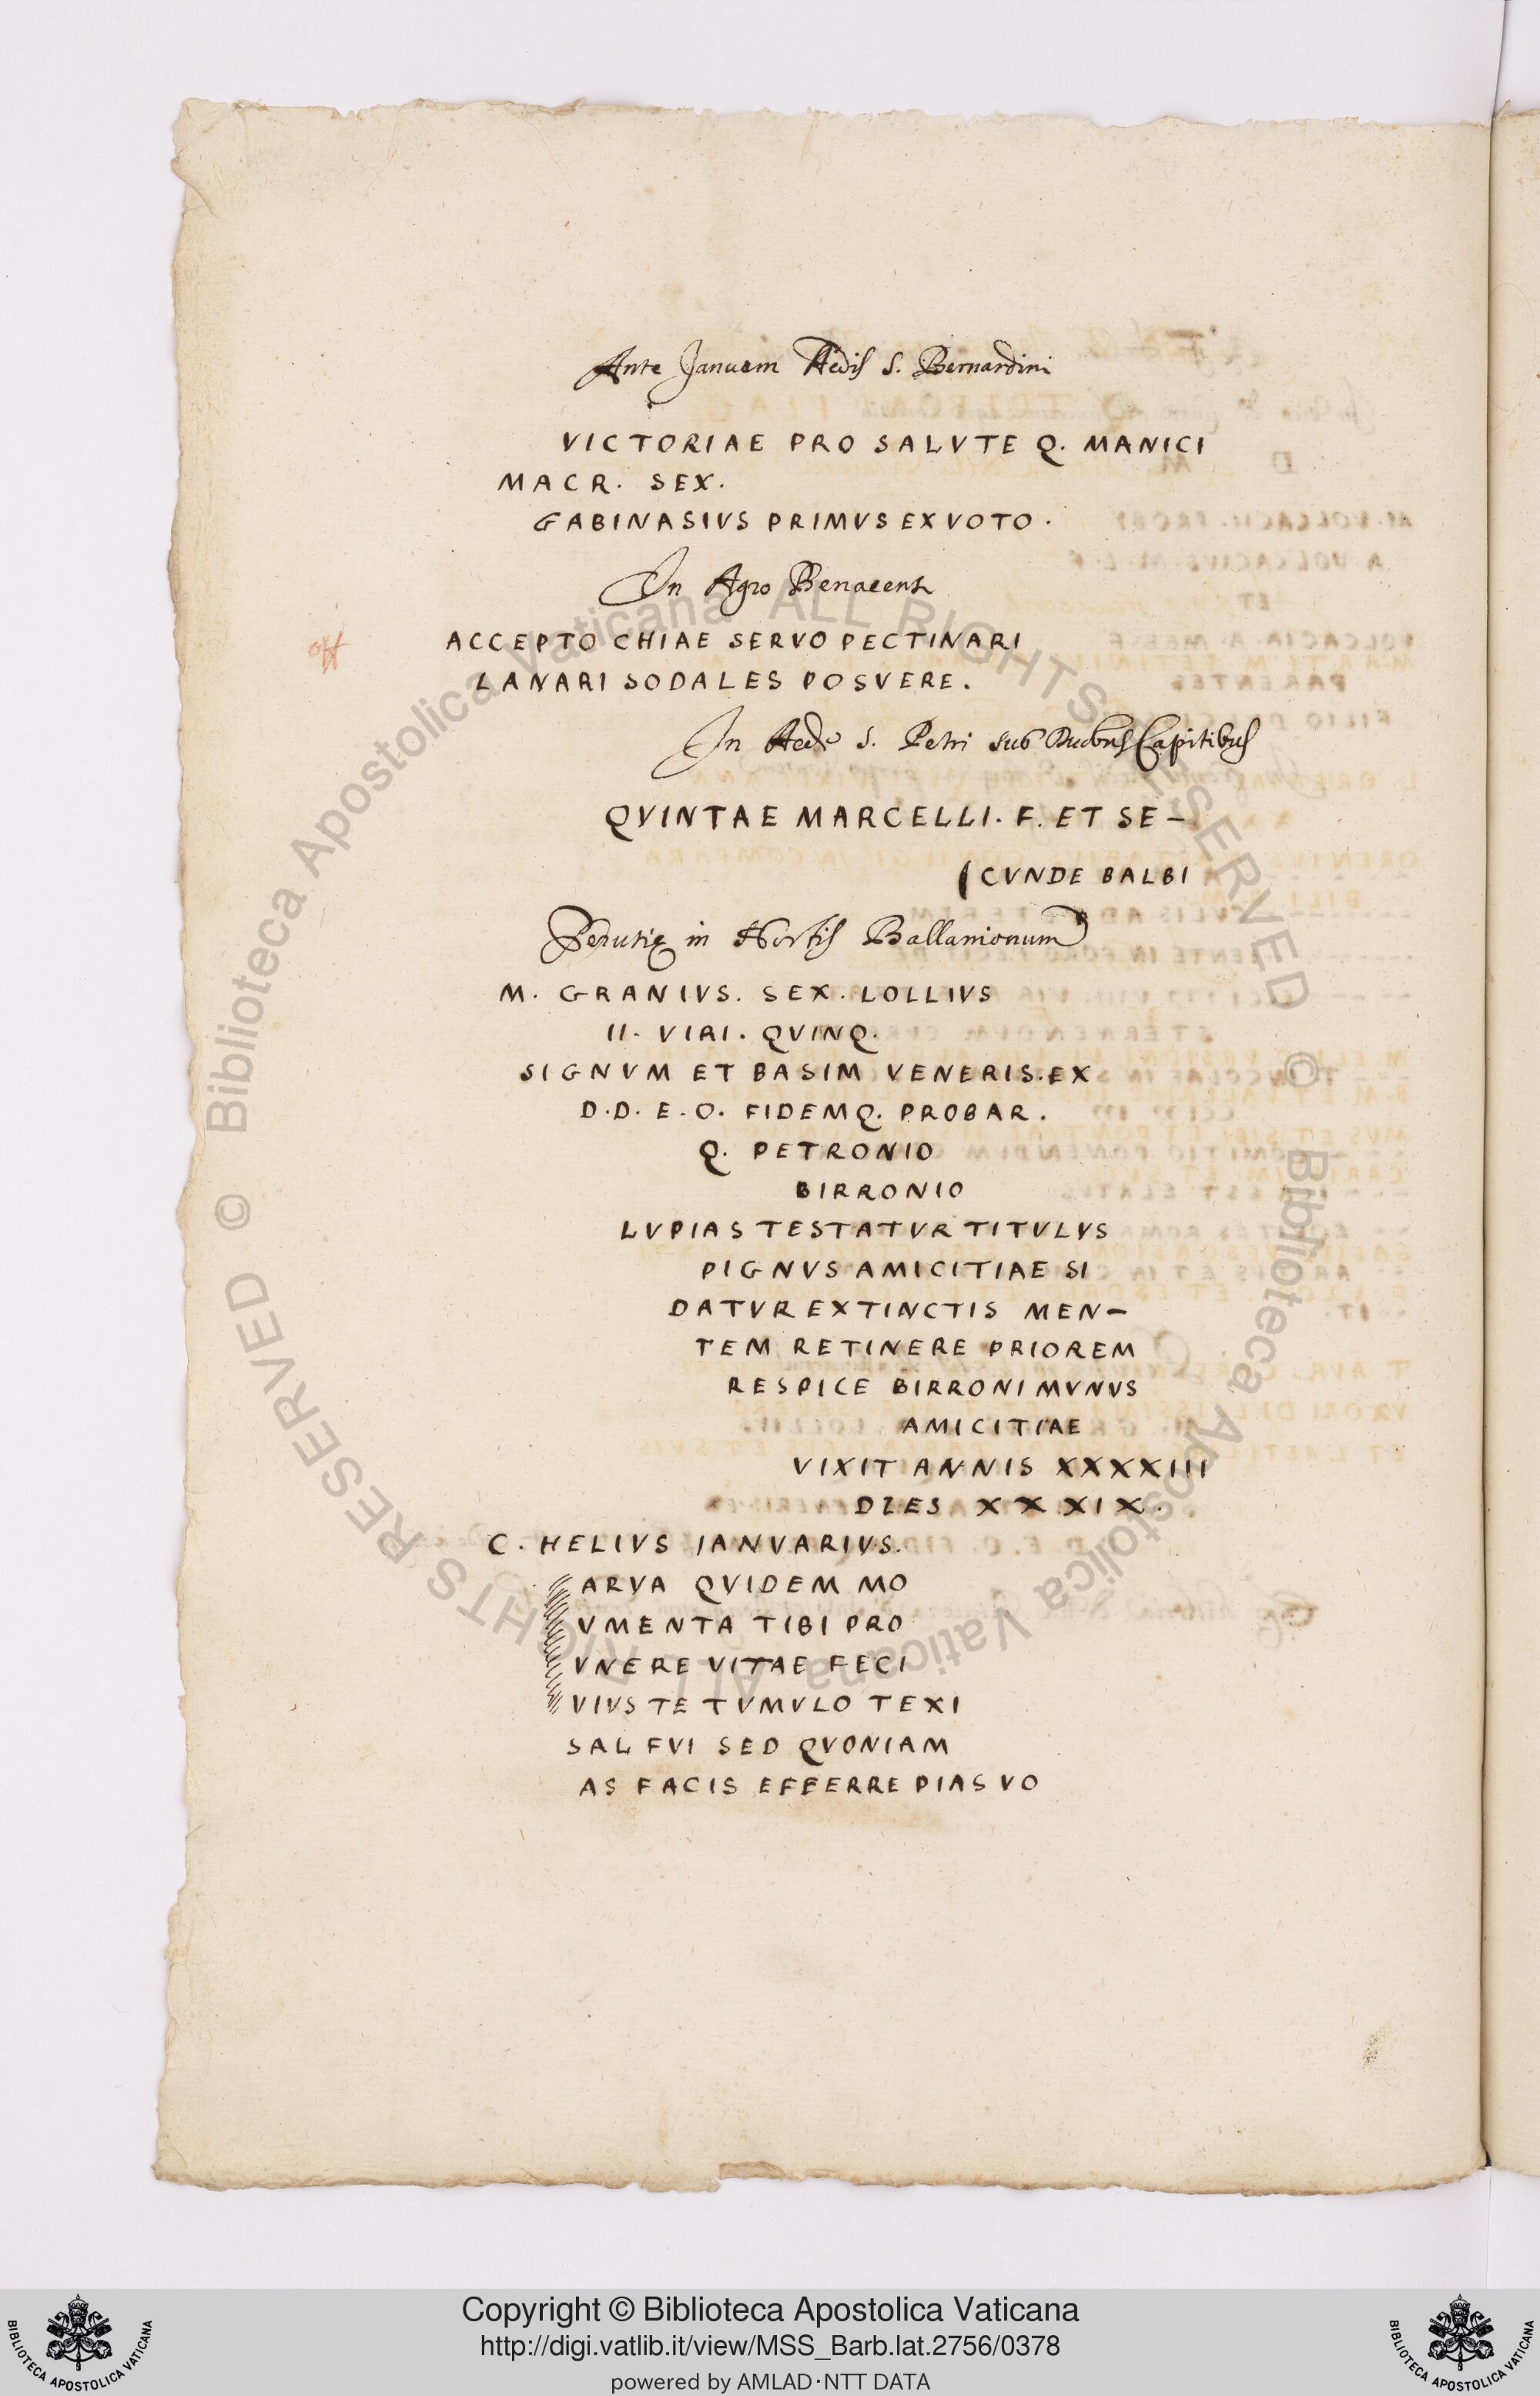 Ante Januam Aedis S. Bernardini
VICTORIAE PRO SALVTE Q. MANICI
MACR. SEX.
GABINASIVS PRIMVS EX VOTO.
In Agro Benacens
off
ACCEPTO CHIAE SERVO PECTINARI
LANARI SODALES POSVERE.
In Aede S. Petri sub Duobus Capitibus
QVINTAE MARCELLI. F. ET SE-
(CVNDE BALBI
in Hortis Ballanionum
M. GRANIVS. SEX. LOLLIVS
II. VIRI. QVINQ.
SIGNVM ET BASIM VENERIS. EX
D.D. E. O. FIDEMQ. PROBAR.
Q. PETRONIO
BIRRONIO
LVPIAS TESTATVR TITVLVS
PIGNVS AMICITIAE SI
DATVR EXTINCTIS MEN-
TEM RETINERE PRIOREM
RESPICE BIRRONI MVNVS
AMICITIAE
VIXIT ANNIS XXXXIII
DIES XXXIX.
C. HELIVS IANVARIVS.
ARVA QVIDEM MO
VMENTA TIBI PRO
VNERE VITAE FECI
VIVS TE TVMVLO TEXI
SAL FVI SED QVONIAM
AS FACIS EFFERRE PIAS VO
© Biblioteca Apostolica Vaticana ALL RIGHTS RESERVED © Biblioteca Apostolica Vaticana ALL RIGHTS RESERVED
BIBLIOTECA APOSTOLICA VATICANA
Copyright © Biblioteca Apostolica Vaticana
http://digi.vatlib.it/view/MSS_Barb.lat.2756/0378
powered by AMLAD·NTT DATA
BIBLIOTECA APOSTOLICA VATICANA